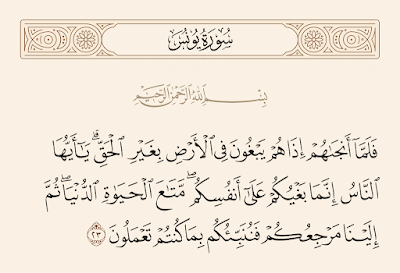 سُورَةُ يُونُسَ
بِسْمِ اللَّهِ الرَّحْمَٰنِ الرَّحِيمِ
فَلَمَّآ أَنجَىٰهُمْ إِذَا هُمْ يَبْغُونَ فِى ٱلْأَرْضِ بِغَيْرِ ٱلْحَقِّ ۗ يَـٰٓأَيُّهَا
ٱلنَّاسُ إِنَّمَا بَغْيُكُمْ عَلَىٰٓ أَنفُسِكُم ۖ مَّتَـٰعَ ٱلْحَيَوٰةِ ٱلدُّنْيَا ۖ ثُمَّ
إِلَيْنَا مَرْجِعُكُمْ فَنُنَبِّئُكُم بِمَا كُنتُمْ تَعْمَلُونَ ٢٣